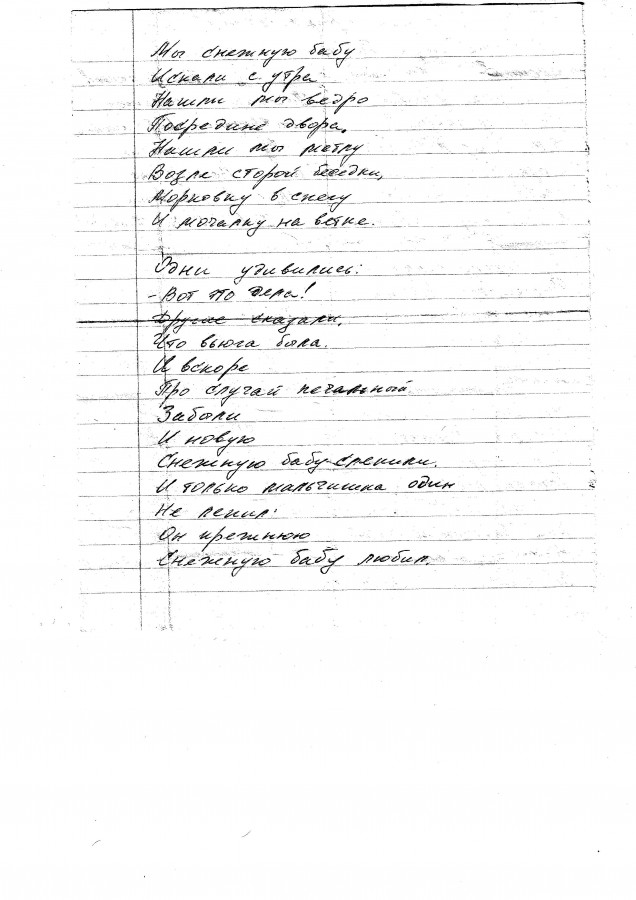 Мы снежную бабу
Искали с утра
Нашли мы ведро
Посредине двора,
Нашли мы метлу
Возле сторой беседки,
Морковку в снегу
И мочалку на ветке.
Одни удивились:
- Вот это дела!
Другие сказали,
Что вьюга была.
И вскоре
Про случай печальный
Забыли
И новую
Снежную бабу слепили.
И только мальчишка один
Не лепил:
Он прежнюю
Снежную бабу любил.